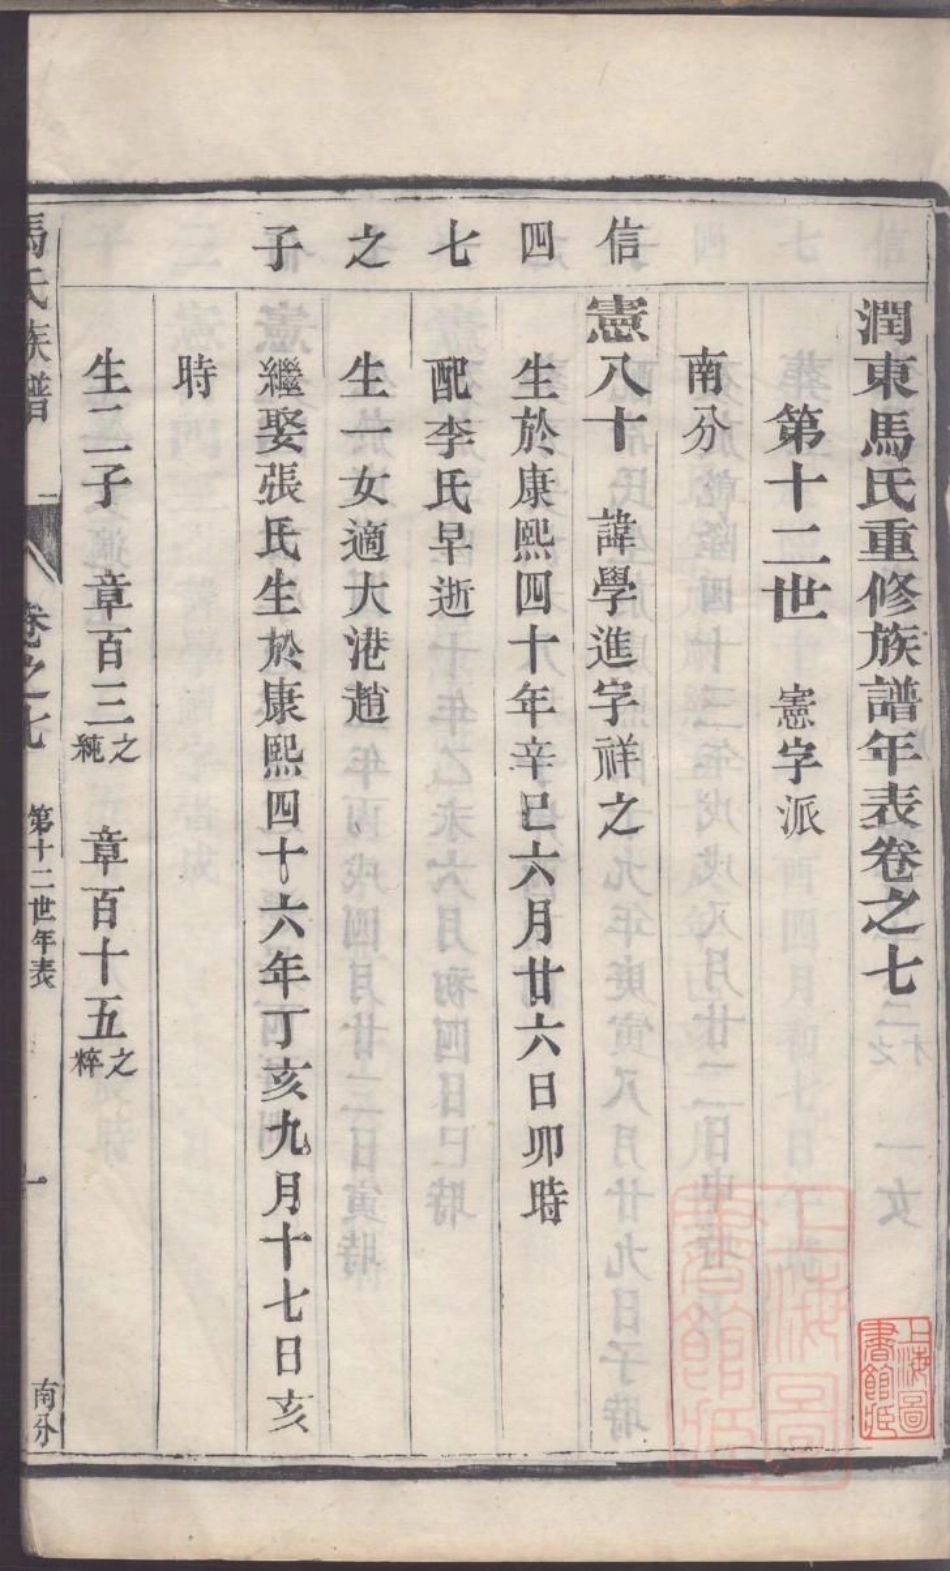 潤東馬氏重修族譜年表卷之七
第十二世 憲字派
南分
信四七之子
憲八十 諱學進字祥之
生於康熙四十年辛巳六月廿六日卯時
配李氏早逝
生一女適大港趙
繼娶張氏生於康熙四十六年丁亥九月十七日亥
時
生二子 章百三之純 章百十五之粹
馬氏族譜 卷之七 第十二世年表 一 南分
上海圖書館藏
上海圖書館藏